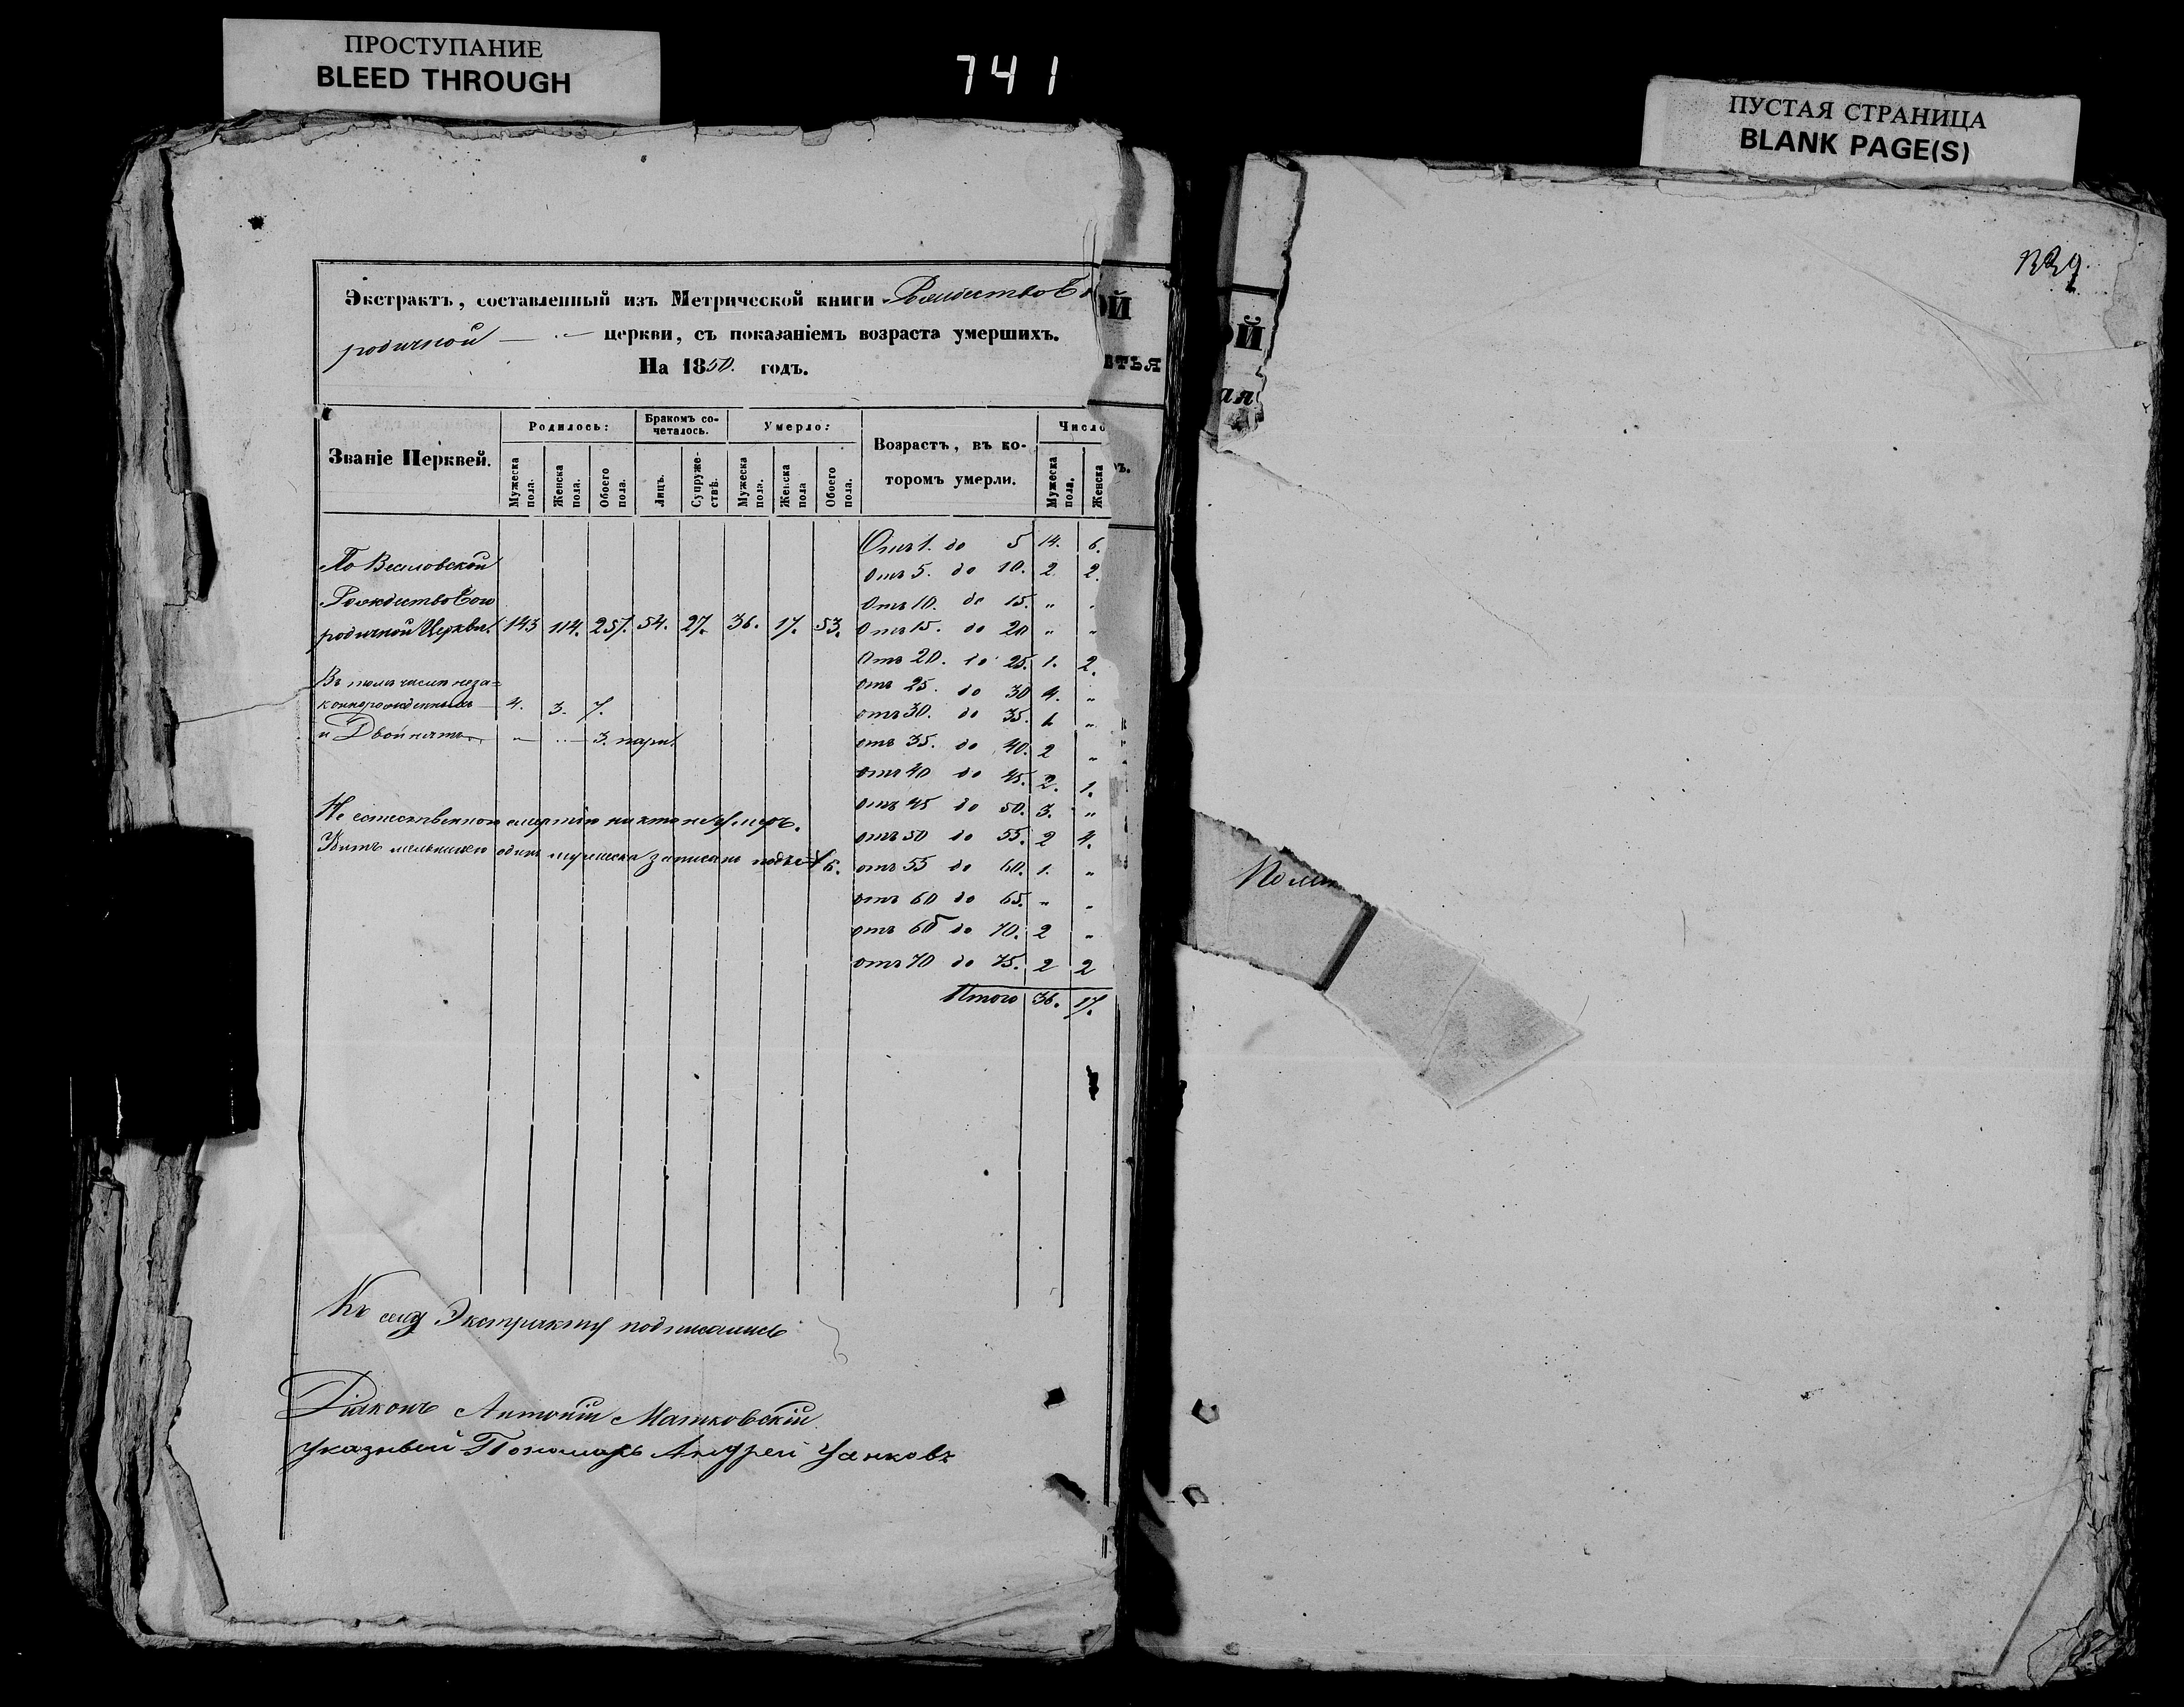 ПРОСТУПАНИЕ
BLEED THROUGH
741
ПУСТАЯ СТРАНИЦА
BLANK PAGE(S)
Экстрактъ, составленный изъ Метрической книги Рождество Бо
родичной церкви, съ показаніемъ возраста умершихъ.
На 1850. годъ.
Званіе Церквей.
Родилось:
Бракомъ со-
четалось.
Умерло:
Возрастъ, въ ко-
торомъ умерли.
Число
Мужеска пола.
Женска пола.
Обоего пола.
Лицъ.
Супруже-
ствъ.
Мужеска пола.
Женска пола
Обоего пола.
Мужеска пола.
Женска
По Веселовской
Рождество Бого
родичной Церкви. 143 114. 257. 54. 27. 36. 17. 53.
Въ томъ числѣ неза=
коннорожденныхъ 4. 3. 7.
и Двойнятъ 3. пары.
Не естественною смертію никто не умеръ.
одинъ мужеска записанъ 
Отъ 1. до 5 14. 6.
Отъ 5. до 10. 2 2.
Отъ 10. до 15. " "
Отъ 15. до 20 " "
Отъ 20. до 25. 1. 2.
отъ 25. до 30 4. "
отъ 30. до 35. 1 "
отъ 35. до 40. 2 "
отъ 40 до 45. 2. 1.
отъ 45 до 50. 3. "
отъ 50 до 55. 2 4.
отъ 55 до 60. 1. "
отъ 60 до 65. " "
отъ 65 до 70. 2 "
отъ 70 до 75. 2 2
Итого 36. 17.
Къ сему Экстракту подписались
Діаконъ Антоній Матковскій
указный Пономарь Андрей
ОЙ
ЕТЬЯ
ОЙ
ая